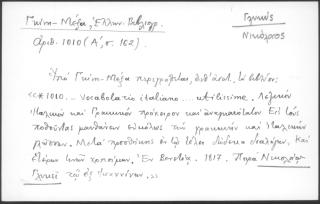 Γκίνη - Μέξα, Ἑλλην. Βιβλιογρ.
Ἀριθ. 1010 (Α', σ. 162)
Γλυκύς
Νικόλαος
Ὑπὸ Γκίνη - Μέξα περιγράφεται, ἀριθ. τὸ βιβλίον:
«*1010. – Vocabolario italiano ... utilissimo. Λεξικὸν
Ἰταλικὸν καὶ Γραικικὸν πρόχειρον καὶ ἀναγκαιότατον Εἰς τοὺς
ποθοῦντας μανθάνειν εὐκόλως τὴν γραικικὴν καὶ Ἰταλικὴν
γλῶσσαν. Μετὰ προσθήκης ἐν τῷ τέλει δώδεκα διαλόγων, Καὶ
ἑτέρων τινῶν χρησίμων. Ἐν Βενετίᾳ. 1817. Παρὰ Νικολάῳ
Γλυκεῖ τῷ ἐξ Ἰωαννίνων...»